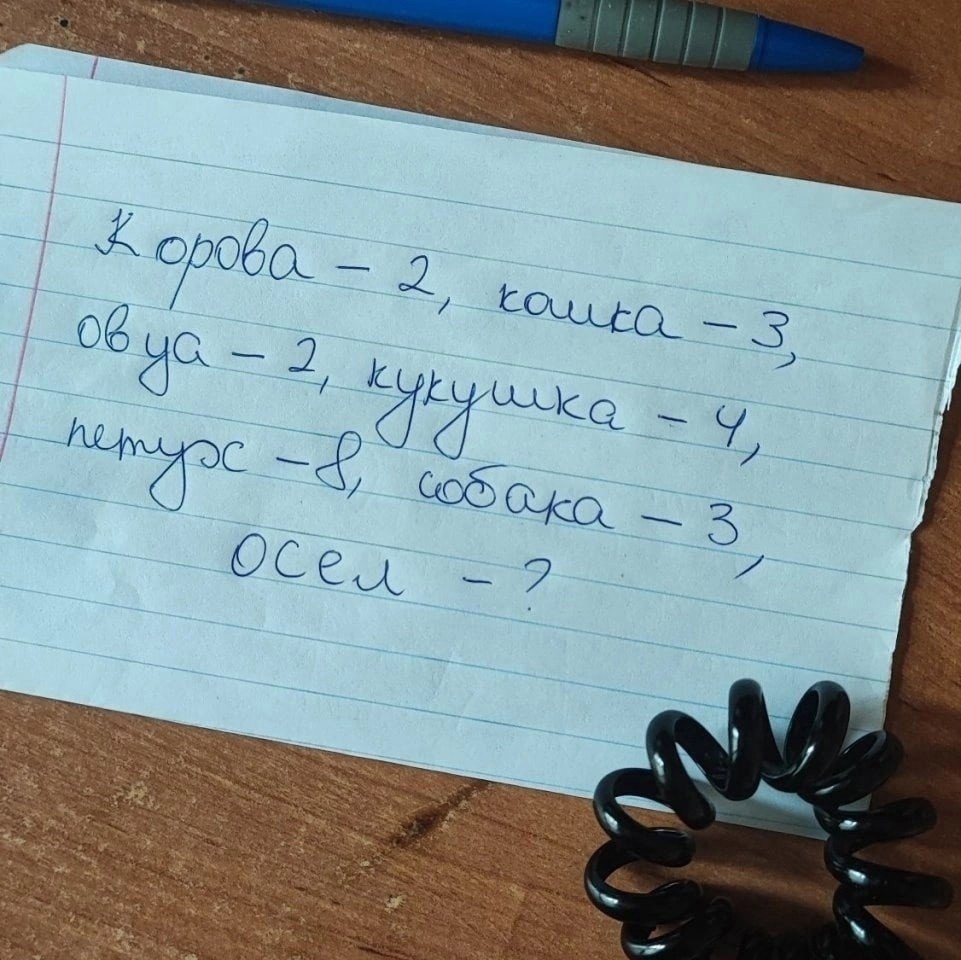 Корова - 2, кошка - 3,
овца - 2, кукушка - 4,
петух - 8, собака - 3,
осел - ?